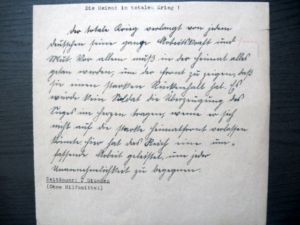 Die Heimat im totalen Krieg !
Der totale Krieg verlangt von jedem
deutschen seine ganze Arbeitskraft und
Mut. Vor allem muß in der Heimat alles
getan werden, um der Front zu zeigen, daß
sie einen starken Rückenhalt hat. Es
würde kein Soldat die Überzeugung des
Sieges im Herzen tragen, wenn er sich
nicht auf die starke Heimatfront verlassen
könnte. Hier hat das Reich eine um-
fassende Arbeit geleistet, um jeder
Unannehmlichkeit zu begegnen.
Zeitdauer: 2 Stunden
(Ohne Hilfsmittel)